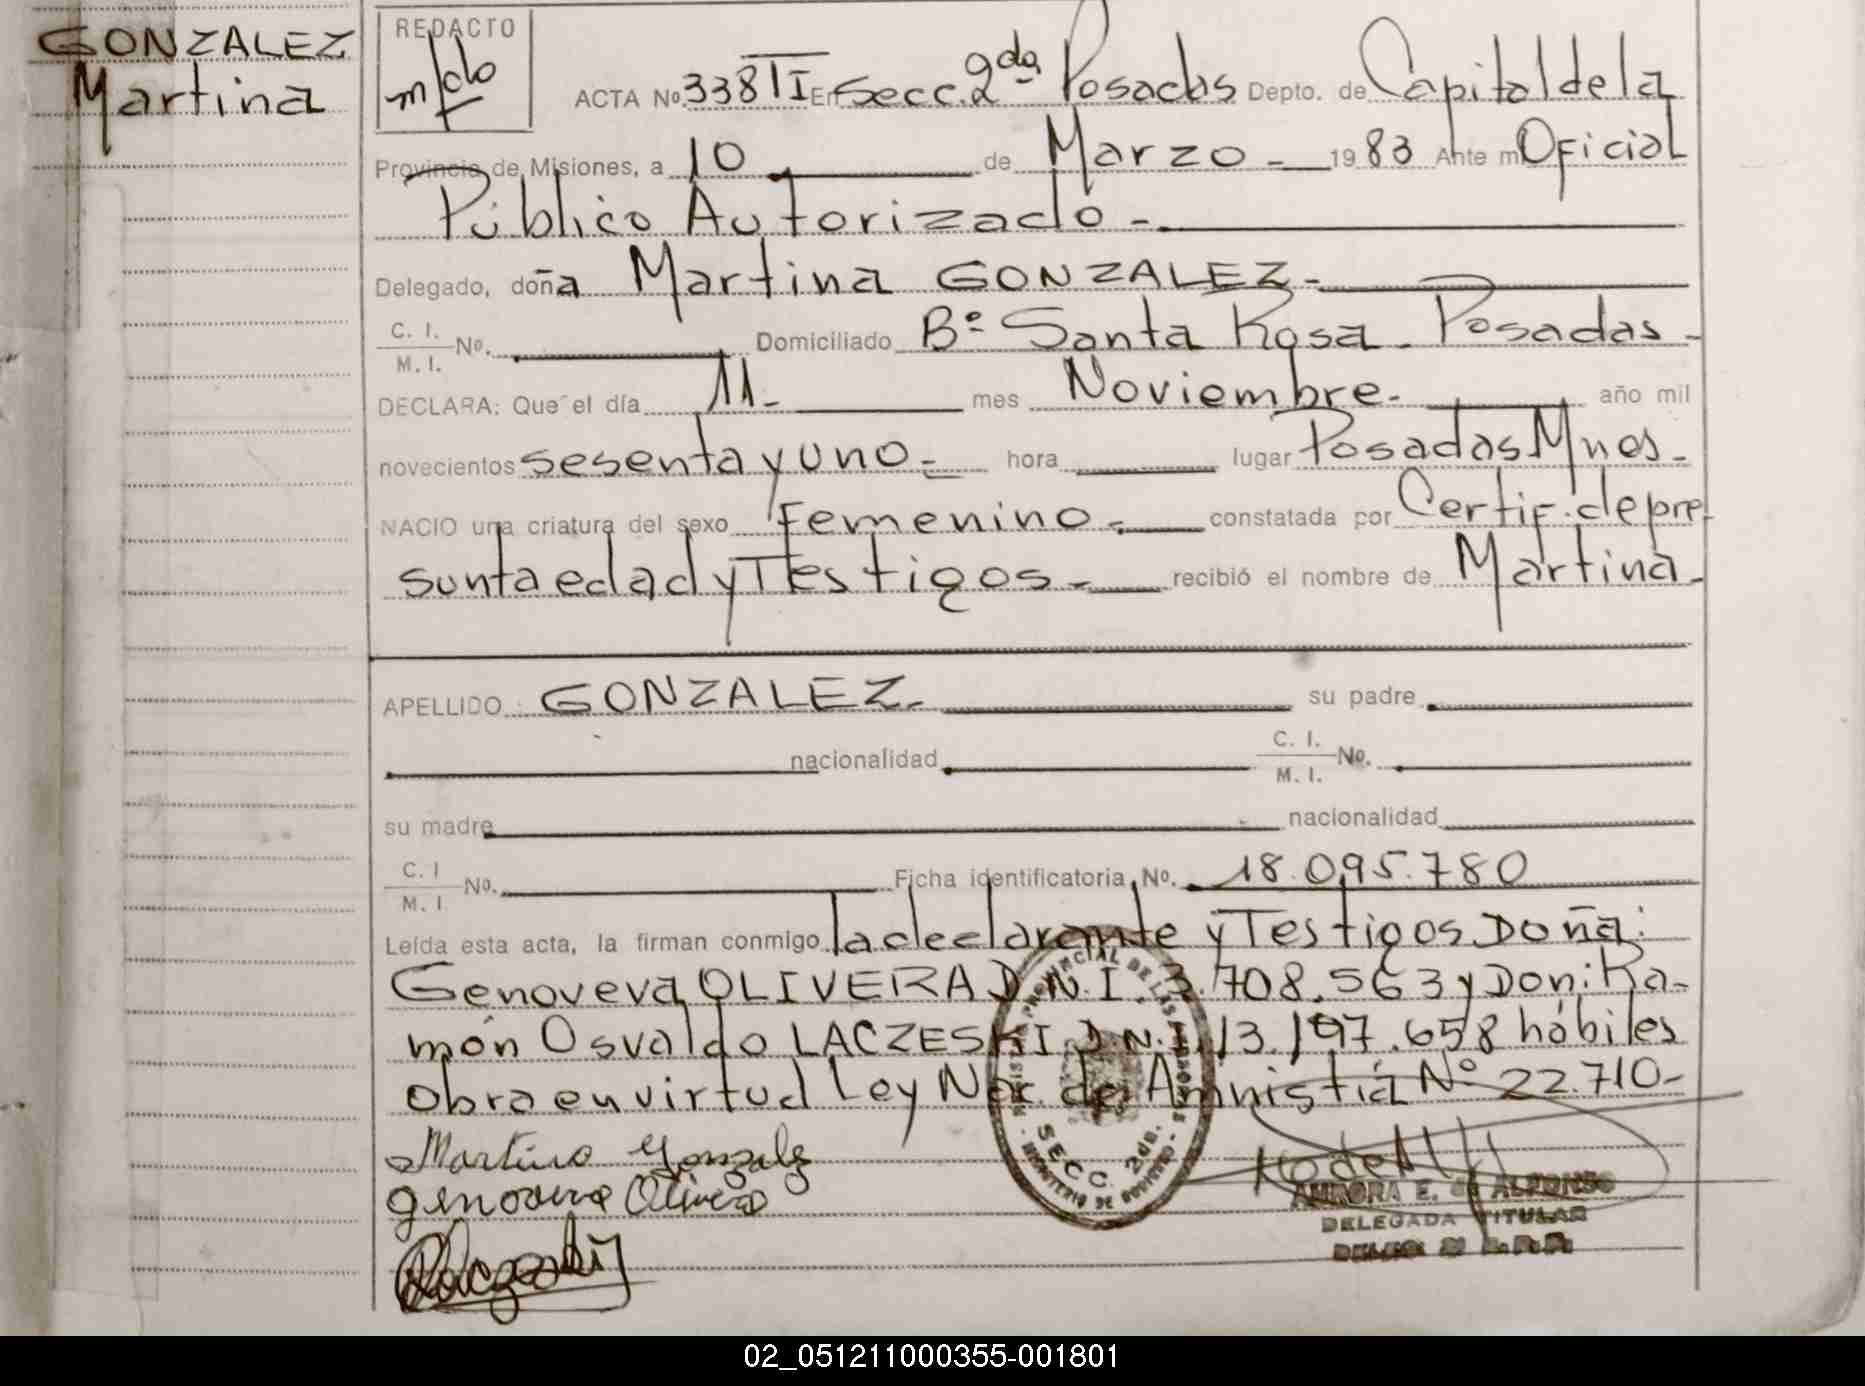 GONZALEZ
Martina
REDACTO
ACTA No. 338 TI En Secc. 2da Posadas Depto. de Capital de la
Provincia de Misiones, a 10 de Marzo - 1983 Ante mi Oficial
Público Autorizado -
Delegado, doña Martina GONZALEZ -
C. I.
M. I. No. Domiciliado Bº Santa Rosa - Posadas -
DECLARA: Que el día 11 - mes Noviembre - año mil
novecientos sesenta y uno - hora lugar Posadas Mnes -
NACIO una criatura del sexo Femenino - constatada por Certif. de pre
sunta edad y Testigos - recibió el nombre de Martina -
APELLIDO GONZALEZ - su padre
nacionalidad C. I.
M. I. No.
su madre nacionalidad
C. I
M. I No. Ficha identificatoria No. 18.095.780
Leída esta acta, la firman conmigo la declarante y Testigos Doña:
Genoveva OLIVERA D.N.I. 3.708.563 y Don: Ra-
món Osvaldo LACZESKI D.N.I. 13.197.658 hábiles
obra en virtud Ley Nac. de Amnistía Nº 22.710 -
Martina Gonzalez
genoveva Olivera
SECC. 2da.
AURORA E. de ALFONSO
DELEGADA TITULAR
02_051211000355-001801